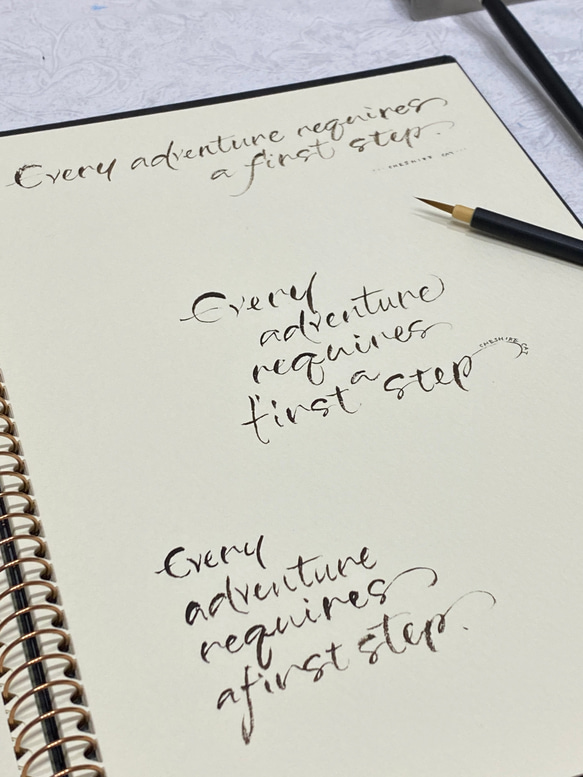 Every adventure requires
a first step.
Every
adventure
requires
a
first step
Every
adventure
requires
a first step.